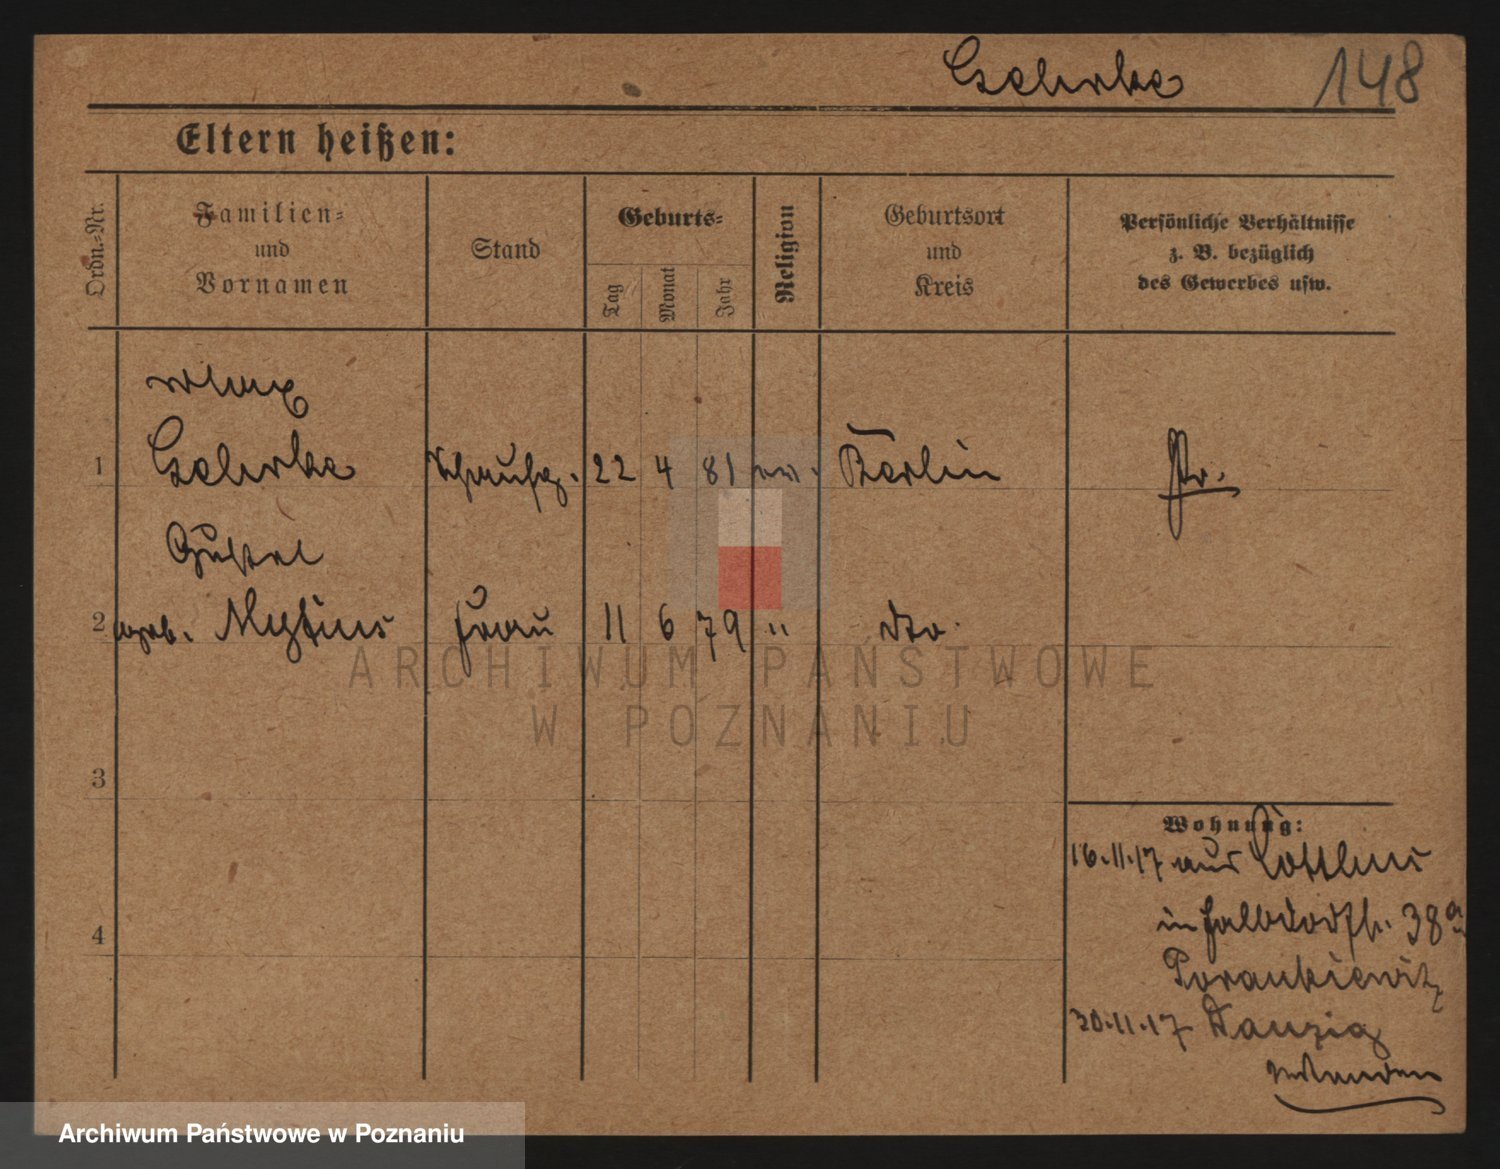 Gehrke 148
Eltern heißen:
Ordn.-Nr.
Familien-
und
Vornamen
Stand
Geburts-
Tag
Monat
Jahr
Religion
Geburtsort
und
Kreis
Persönliche Verhältnisse
z. B. bezüglich
des Gewerbes usw.
Max
1 Gehrke Schausp. 22 4 81 ev. Berlin Pr.
Gustel
2 geb. Mylius Frau 11 6 79 " dto.
3
4
Wohnung:
16.11.17 aus Cottbus
in 38a
Porankiewitz
30.11.17 Danzig
ARCHIWUM PAŃSTWOWE
W POZNANIU
Archiwum Państwowe w Poznaniu